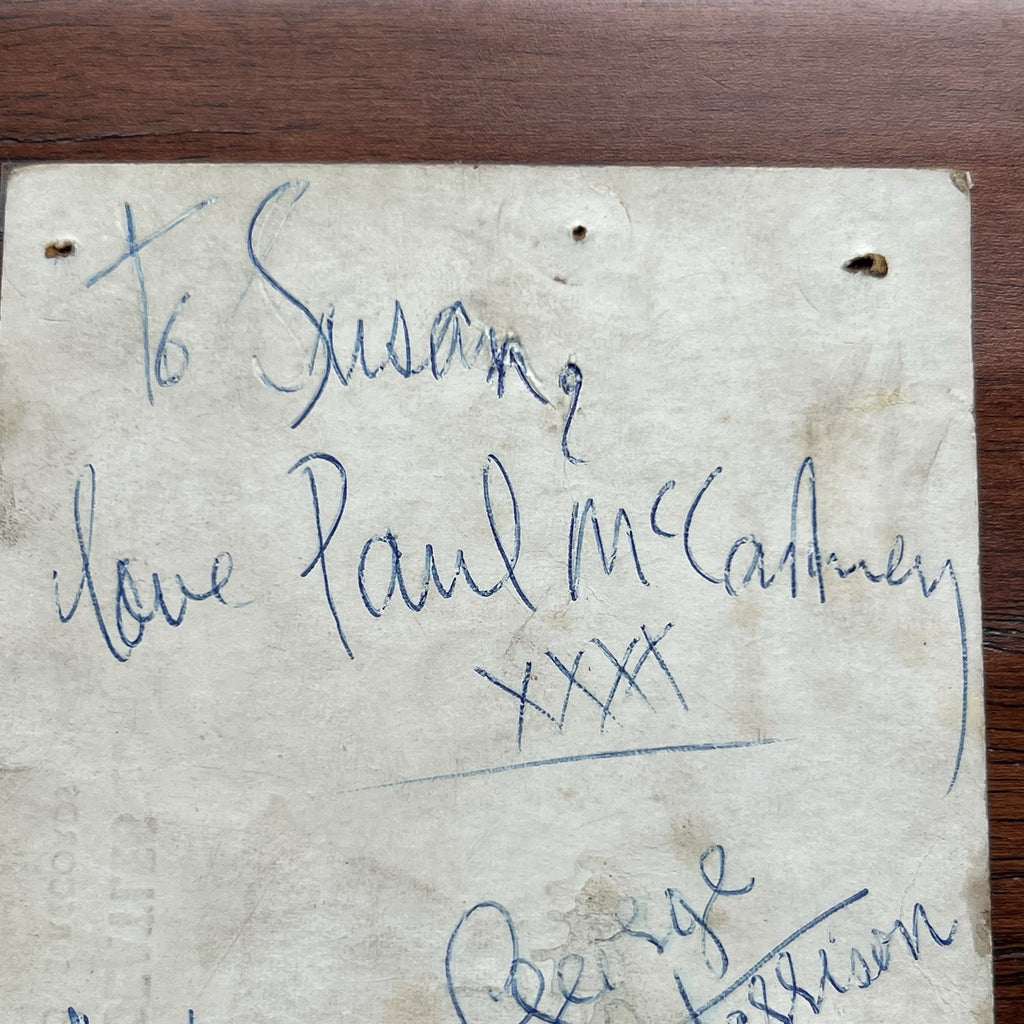 To Susan,
love Paul McCartney
XXXX
George
Harrison